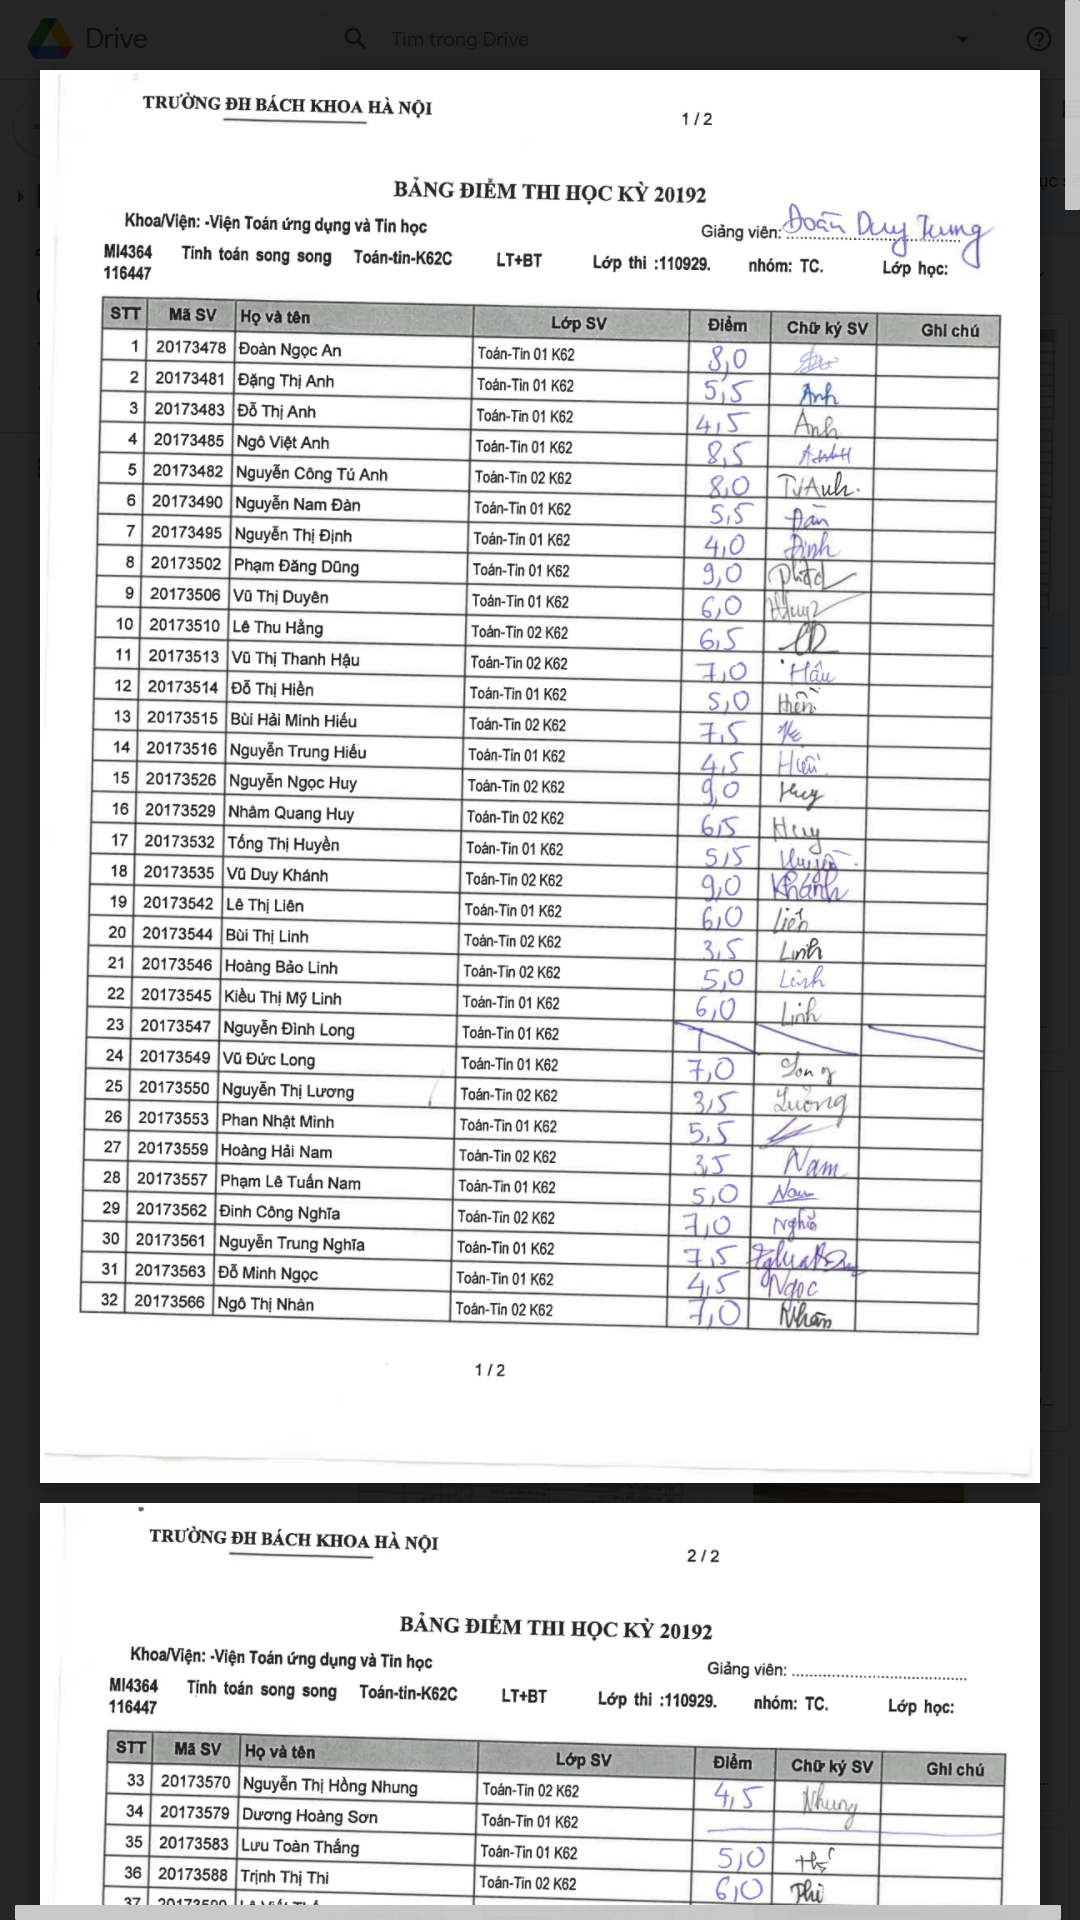 Drive
Tìm trong Drive
TRƯỜNG ĐH BÁCH KHOA HÀ NỘI
1 / 2
BẢNG ĐIỂM THI HỌC KỲ 20192
Khoa/Viện: -Viện Toán ứng dụng và Tin học
Giảng viên: Đoàn Duy Trung
MI4364 Tính toán song song Toán-tin-K62C LT+BT Lớp thi :110929. nhóm: TC. Lớp học:
116447
STT Mã SV Họ và tên Lớp SV Điểm Chữ ký SV Ghi chú
1 20173478 Đoàn Ngọc An Toán-Tin 01 K62 8,0
2 20173481 Đặng Thị Anh Toán-Tin 01 K62 5,5 Anh
3 20173483 Đỗ Thị Anh Toán-Tin 01 K62 4,5 Anh
4 20173485 Ngô Việt Anh Toán-Tin 01 K62 8,5
5 20173482 Nguyễn Công Tú Anh Toán-Tin 02 K62 8,0 TúAnh.
6 20173490 Nguyễn Nam Đàn Toán-Tin 01 K62 5,5 Đàn
7 20173495 Nguyễn Thị Định Toán-Tin 01 K62 4,0 Định
8 20173502 Phạm Đăng Dũng Toán-Tin 01 K62 9,0
9 20173506 Vũ Thị Duyên Toán-Tin 01 K62 6,0
10 20173510 Lê Thu Hằng Toán-Tin 02 K62 6,5
11 20173513 Vũ Thị Thanh Hậu Toán-Tin 02 K62 7,0 Hậu
12 20173514 Đỗ Thị Hiền Toán-Tin 01 K62 5,0 Hiền
13 20173515 Bùi Hải Minh Hiếu Toán-Tin 02 K62 7,5
14 20173516 Nguyễn Trung Hiếu Toán-Tin 01 K62 4,5 Hiếu
15 20173526 Nguyễn Ngọc Huy Toán-Tin 02 K62 9,0 Huy
16 20173529 Nhâm Quang Huy Toán-Tin 02 K62 6,5 Huy
17 20173532 Tống Thị Huyền Toán-Tin 01 K62 5,5 Huyền
18 20173535 Vũ Duy Khánh Toán-Tin 02 K62 9,0 Khánh
19 20173542 Lê Thị Liên Toán-Tin 01 K62 6,0 Liên
20 20173544 Bùi Thị Linh Toán-Tin 02 K62 3,5 Linh
21 20173546 Hoàng Bảo Linh Toán-Tin 02 K62 5,0 Linh
22 20173545 Kiều Thị Mỹ Linh Toán-Tin 01 K62 6,0 Linh
23 20173547 Nguyễn Đình Long Toán-Tin 01 K62
24 20173549 Vũ Đức Long Toán-Tin 01 K62 7,0 Long
25 20173550 Nguyễn Thị Lương Toán-Tin 02 K62 3,5 Lương
26 20173553 Phan Nhật Minh Toán-Tin 01 K62 5,5
27 20173559 Hoàng Hải Nam Toán-Tin 02 K62 3,5 Nam
28 20173557 Phạm Lê Tuấn Nam Toán-Tin 01 K62 5,0 Nam
29 20173562 Đinh Công Nghĩa Toán-Tin 02 K62 7,0 Nghĩa
30 20173561 Nguyễn Trung Nghĩa Toán-Tin 01 K62 7,5
31 20173563 Đỗ Minh Ngọc Toán-Tin 01 K62 4,5 Ngọc
32 20173566 Ngô Thị Nhàn Toán-Tin 02 K62 7,0 Nhàn
1 / 2
TRƯỜNG ĐH BÁCH KHOA HÀ NỘI
2 / 2
BẢNG ĐIỂM THI HỌC KỲ 20192
Khoa/Viện: -Viện Toán ứng dụng và Tin học
Giảng viên:
MI4364 Tính toán song song Toán-tin-K62C LT+BT Lớp thi :110929. nhóm: TC. Lớp học:
116447
STT Mã SV Họ và tên Lớp SV Điểm Chữ ký SV Ghi chú
33 20173570 Nguyễn Thị Hồng Nhung Toán-Tin 02 K62 4,5 Nhung
34 20173579 Dương Hoàng Sơn Toán-Tin 01 K62
35 20173583 Lưu Toàn Thắng Toán-Tin 01 K62 5,0
36 20173588 Trịnh Thị Thi Toán-Tin 02 K62 6,0 Thi
37